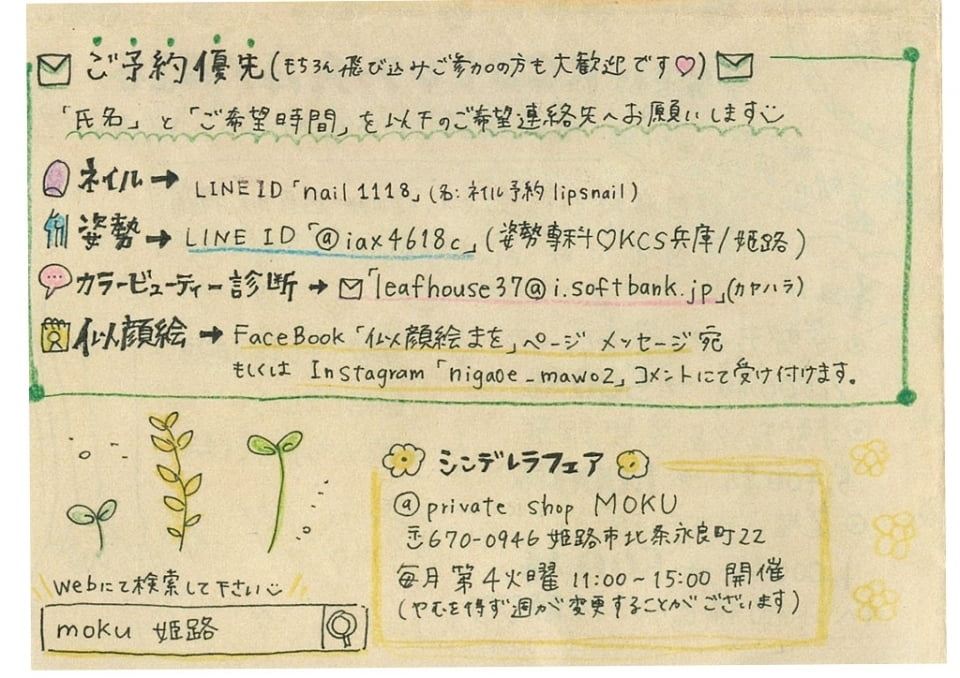 ご予約優先(もちろん飛び込みご参加の方も大歓迎です♡)
「氏名」と「ご希望時間」を以下のご希望連絡先へお願いします
ネイル→ LINE ID「nail 1118」(名:ネイル予約 lipsnail)
姿勢→ LINE ID「@iax4618c」(姿勢専科♡KCS兵庫/姫路)
カラービューティー診断→「leafhouse37@i.softbank.jp」(カヤハラ)
似顔絵→ FaceBook「似顔絵まを」ページ メッセージ宛
もしくは Instagram「nigaoe_mawo2」コメントにて受け付けます。
シンデレラフェア
@private shop MOKU
〒670-0946 姫路市北条永良町22
毎月第4火曜 11:00~15:00 開催
(やむを得ず週が変更することがございます)
webにて検索して下さい
moku 姫路